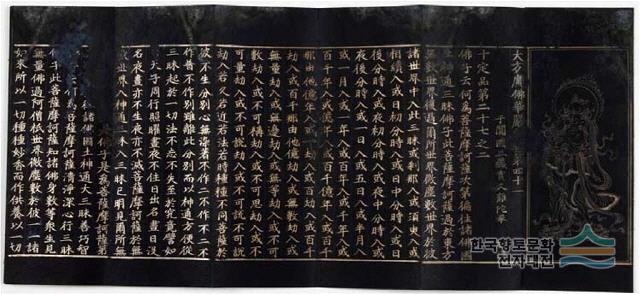 大方廣佛華嚴經卷第四十一
于闐國三藏實叉難陀譯
十定品第二十七之二
佛子云何為菩薩摩訶薩次第徧往諸佛國
土神通三昧佛子此菩薩摩訶薩過於東方
無數世界復過爾所世界微塵數世界於彼
諸世界中入此三昧或刹那入或須臾入或
相續入或日初分時入或日中分時入或日
後分時入或夜初分時入或夜中分時入或
夜後分時入或一日入或五日入或半月入
或一月入或一年入或百年入或千年入或
百千年入或億年入或百千億年入或百千
那由他億年入或一劫入或百劫入或百千
劫入或百千那由他億劫入或無數劫入或
無量劫入或無邊劫入或無等劫入或不可
數劫入或不可稱劫入或不可思劫入或不
可量劫入或不可說劫入或不可說不可說
劫入若久若近若法若時種種不同菩薩於
彼不生分別心無染著不作二不作不二不
作普不作別雖離此分別而以神通方便從
三昧起於一切法不忘不失至於究竟譬如
天子周行照曜晝夜不住日出名晝日沒
名夜晝亦不生夜亦不滅菩薩摩訶薩於無
世界入神通三昧入三昧已明見爾所無
佛子是為菩薩摩訶薩第
諸佛國土神通大三昧善巧智
為菩薩摩訶薩清淨深心行三昧
佛子此菩薩摩訶薩知諸佛身數等眾生見
無量佛過阿僧祇世界微塵數於彼一一諸
如來所以一切種種妙香而作供養以一切
한국향토문화
전자대전